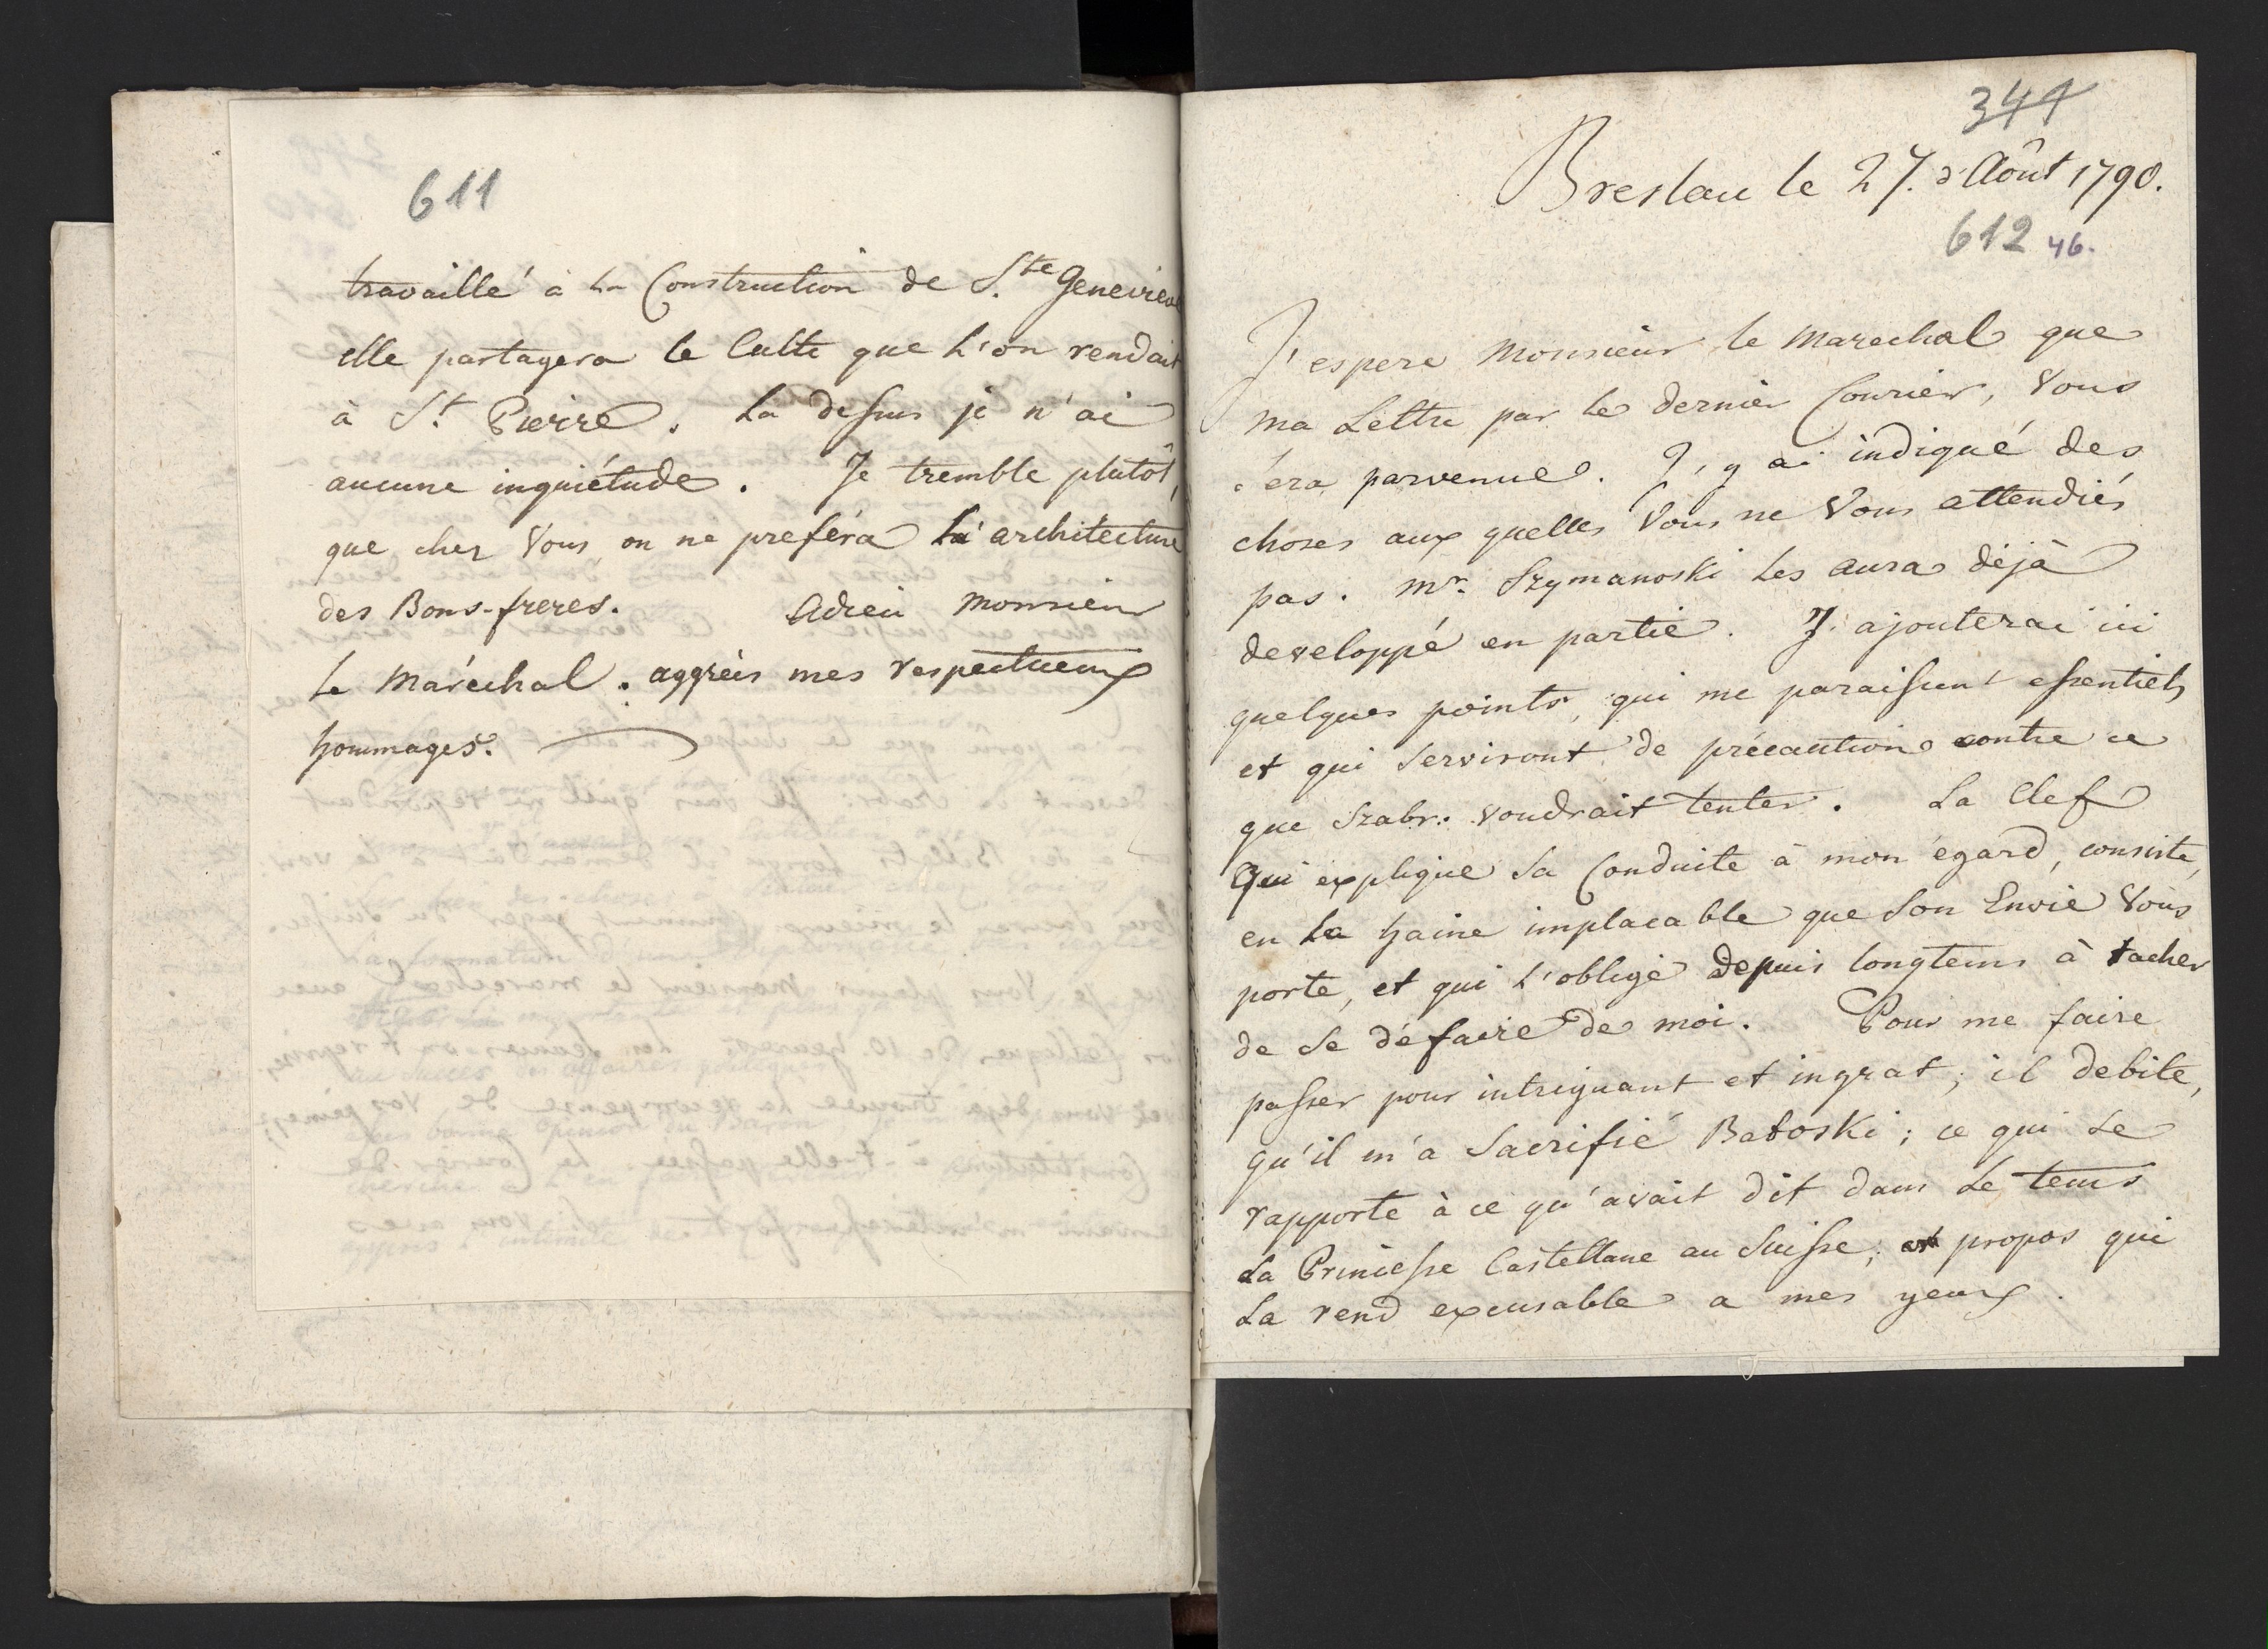 611
travaillé à la Construction de S.te Genevieve
elle partagera le Culte que l'on rendait
à S.t Pierre. La dessus je n'ai
aucune inquiétude. Je tremble plutôt,
que chez Vous on ne prefera l'architecture
des Bons-freres. Adieu Monsieur
le Maréchal. aggréés mes respectueux
hommages.
344
Breslau le 27. d'Août 1790.
612 46.
J'espere Monsieur le Marechal que
ma Lettre par le dernier Courier, Vous
sera parvenue. J'y ai indiqué des
choses aux quelles Vous ne Vous attendiés
pas. Mr. Szymanoski les aura déjà
developpé en partie. J'ajouterai ici
quelques points, qui me paraissent essentiels
et qui Serviront de précaution contre ce
que Szabr. voudrait tenter. La Clef
Qui explique Sa Conduite à mon égard, consiste,
en la haine implacable que Son Envie Vous
porte, et qui l'oblige depuis longtems à tacher
de se défaire de moi. Pour me faire
passer pour intriguant et ingrat; il debite,
qu'il m'a Sacrifié Baboski; ce qui se
rapporte à ce qu'avait dit dans le tems
La Princesse Castellane au Suisse; propos qui
La rend excusable a mes yeux.